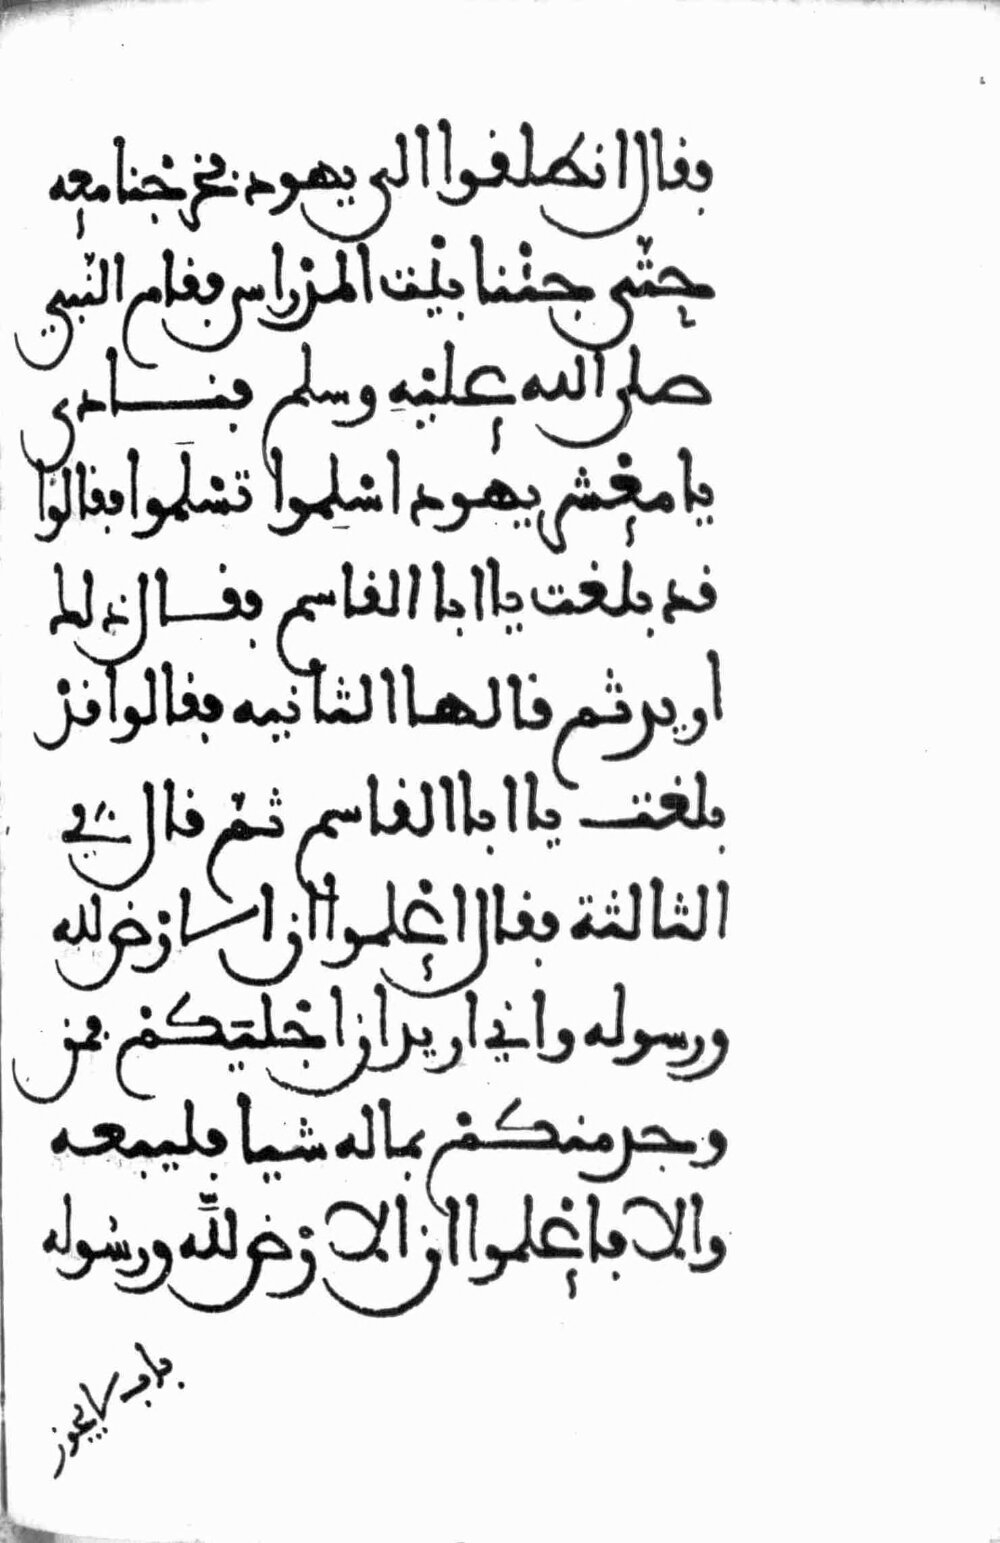 فقال انطلقوا الى يهود فخرجنا معه
حتّى جئنا بيْت المدراس فقام النّبي
صلى الله عليْه وسلم فنادى
يا معْشر يهود اسْلِموا تسْلَموا فقالوا
قد بلغت يا ابا القاسم فقال ذلك
اريد ثم قالها الثانيه فقالوا قدْ
بلغت يا ابا القاسم ثمّ قال في
الثالثة فقال اعْلموا ان الارْض لله
ورسوله واني اريد ان اجْليكمْ فمن
وجد منكمْ بماله شيا فليبعه
والا فاعْلموا ان الارْض للّه ورسوله
باب لا يجوز